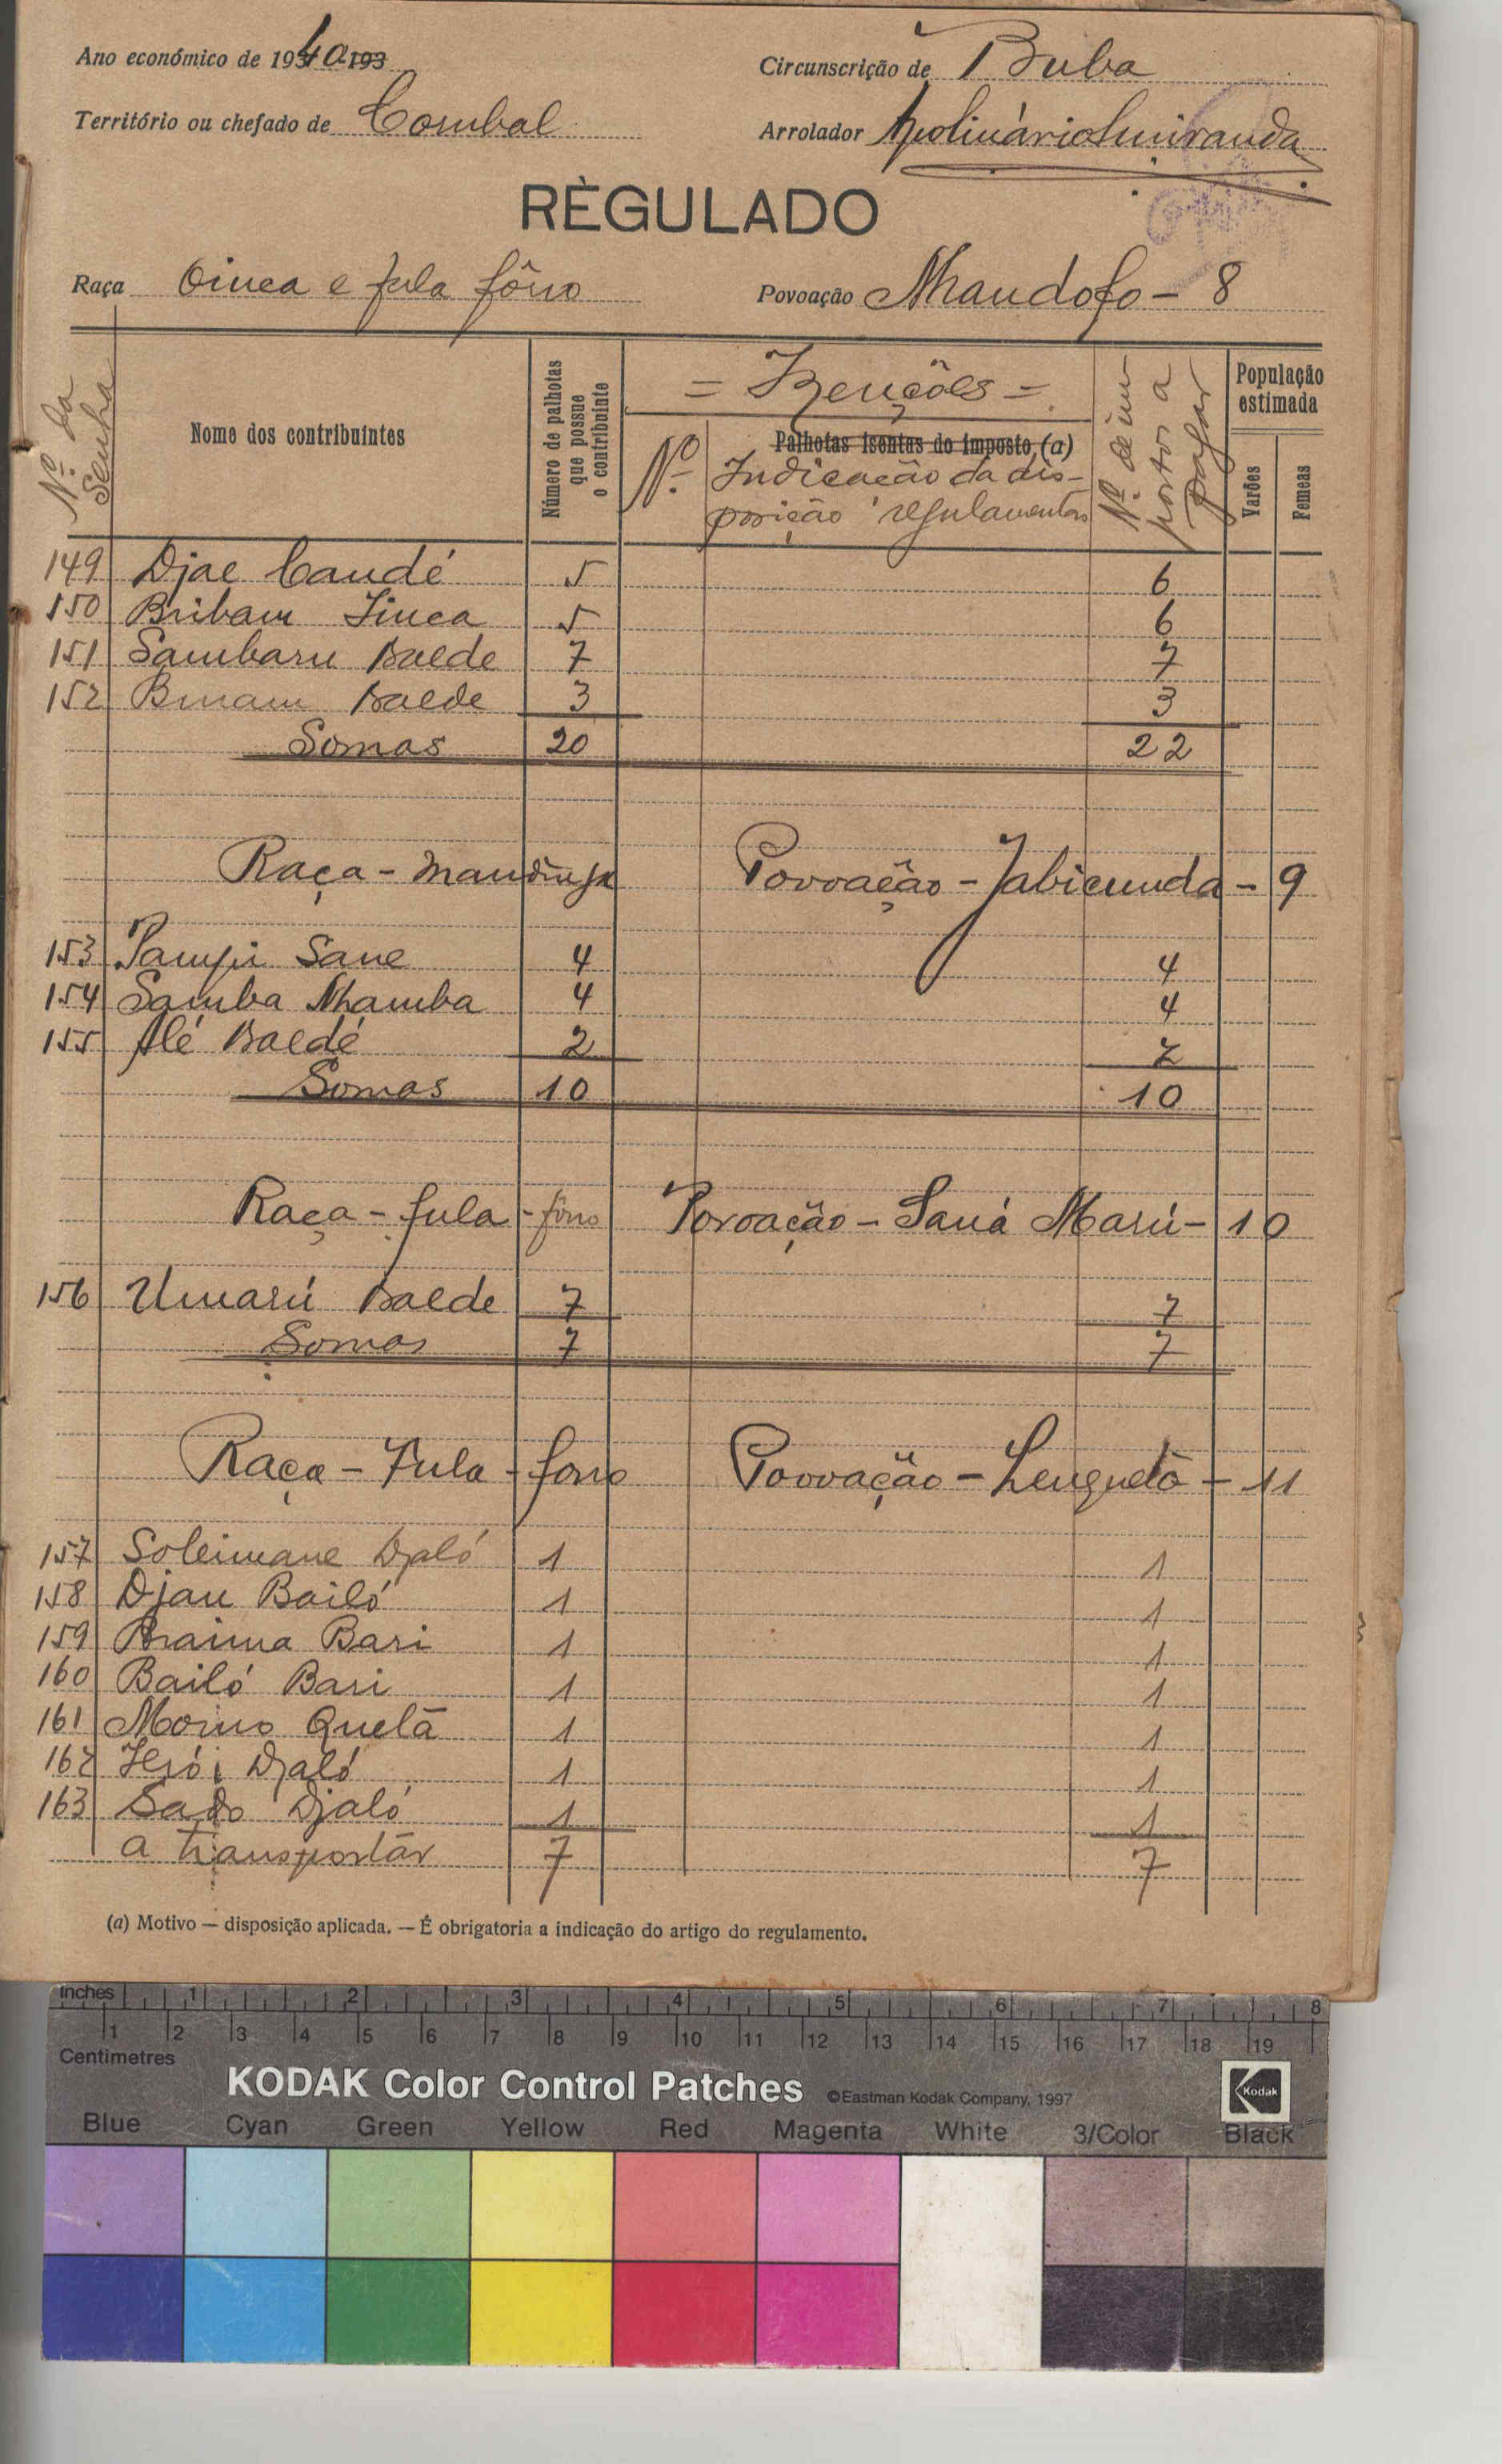 Ano económico de 1940 193
Circunscrição de Buba
Território ou chefado de Corubal
Arrolador Apolinário Smiranda
RÈGULADO
Raça Oinca e fula fôrro
Povoação Nhandofo - 8
Nº da Senha
Nome dos contribuintes
Número de palhotas que possue o contribuinte
= Izenções =
Palhotas isentas do imposto (a)
Nº
Indicação da disposição regulamentar
Nº de impostos a pagar
População estimada
Varões
Femeas
149 Djae Candé 5 6
150 Bribam Finca 5 6
151 Sambaru Balde 7 7
152 Balde 3 3
Somas 20 22
Raça - Mandinga Povoação - Jabicunda - 9
153 Sane 4 4
154 Samba Nhamba 4 4
155 Alé Baldé 2 2
Somas 10 10
Raça - fula - fôrro Povoação - Saná Marú - 10
156 Umarú Balde 7 7
Somas 7 7
Raça - Fula - forro Povoação - Lenguetò - 11
157 Soleimane Djaló 1 1
158 Djau Bailó 1 1
159 Braima Bari 1 1
160 Bailó Bari 1 1
161 Morno Quetã 1 1
162 Djaló 1 1
163 Sado Djaló 1 1
a transportár 7 7
(a) Motivo — disposição aplicada. — É obrigatoria a indicação do artigo do regulamento.
Inches 1 2 3 4 5 6 7 8
1 2 3 4 5 6 7 8 9 10 11 12 13 14 15 16 17 18 19
Centimetres
KODAK Color Control Patches ©Eastman Kodak Company, 1997 Kodak
Blue Cyan Green Yellow Red Magenta White 3/Color Black